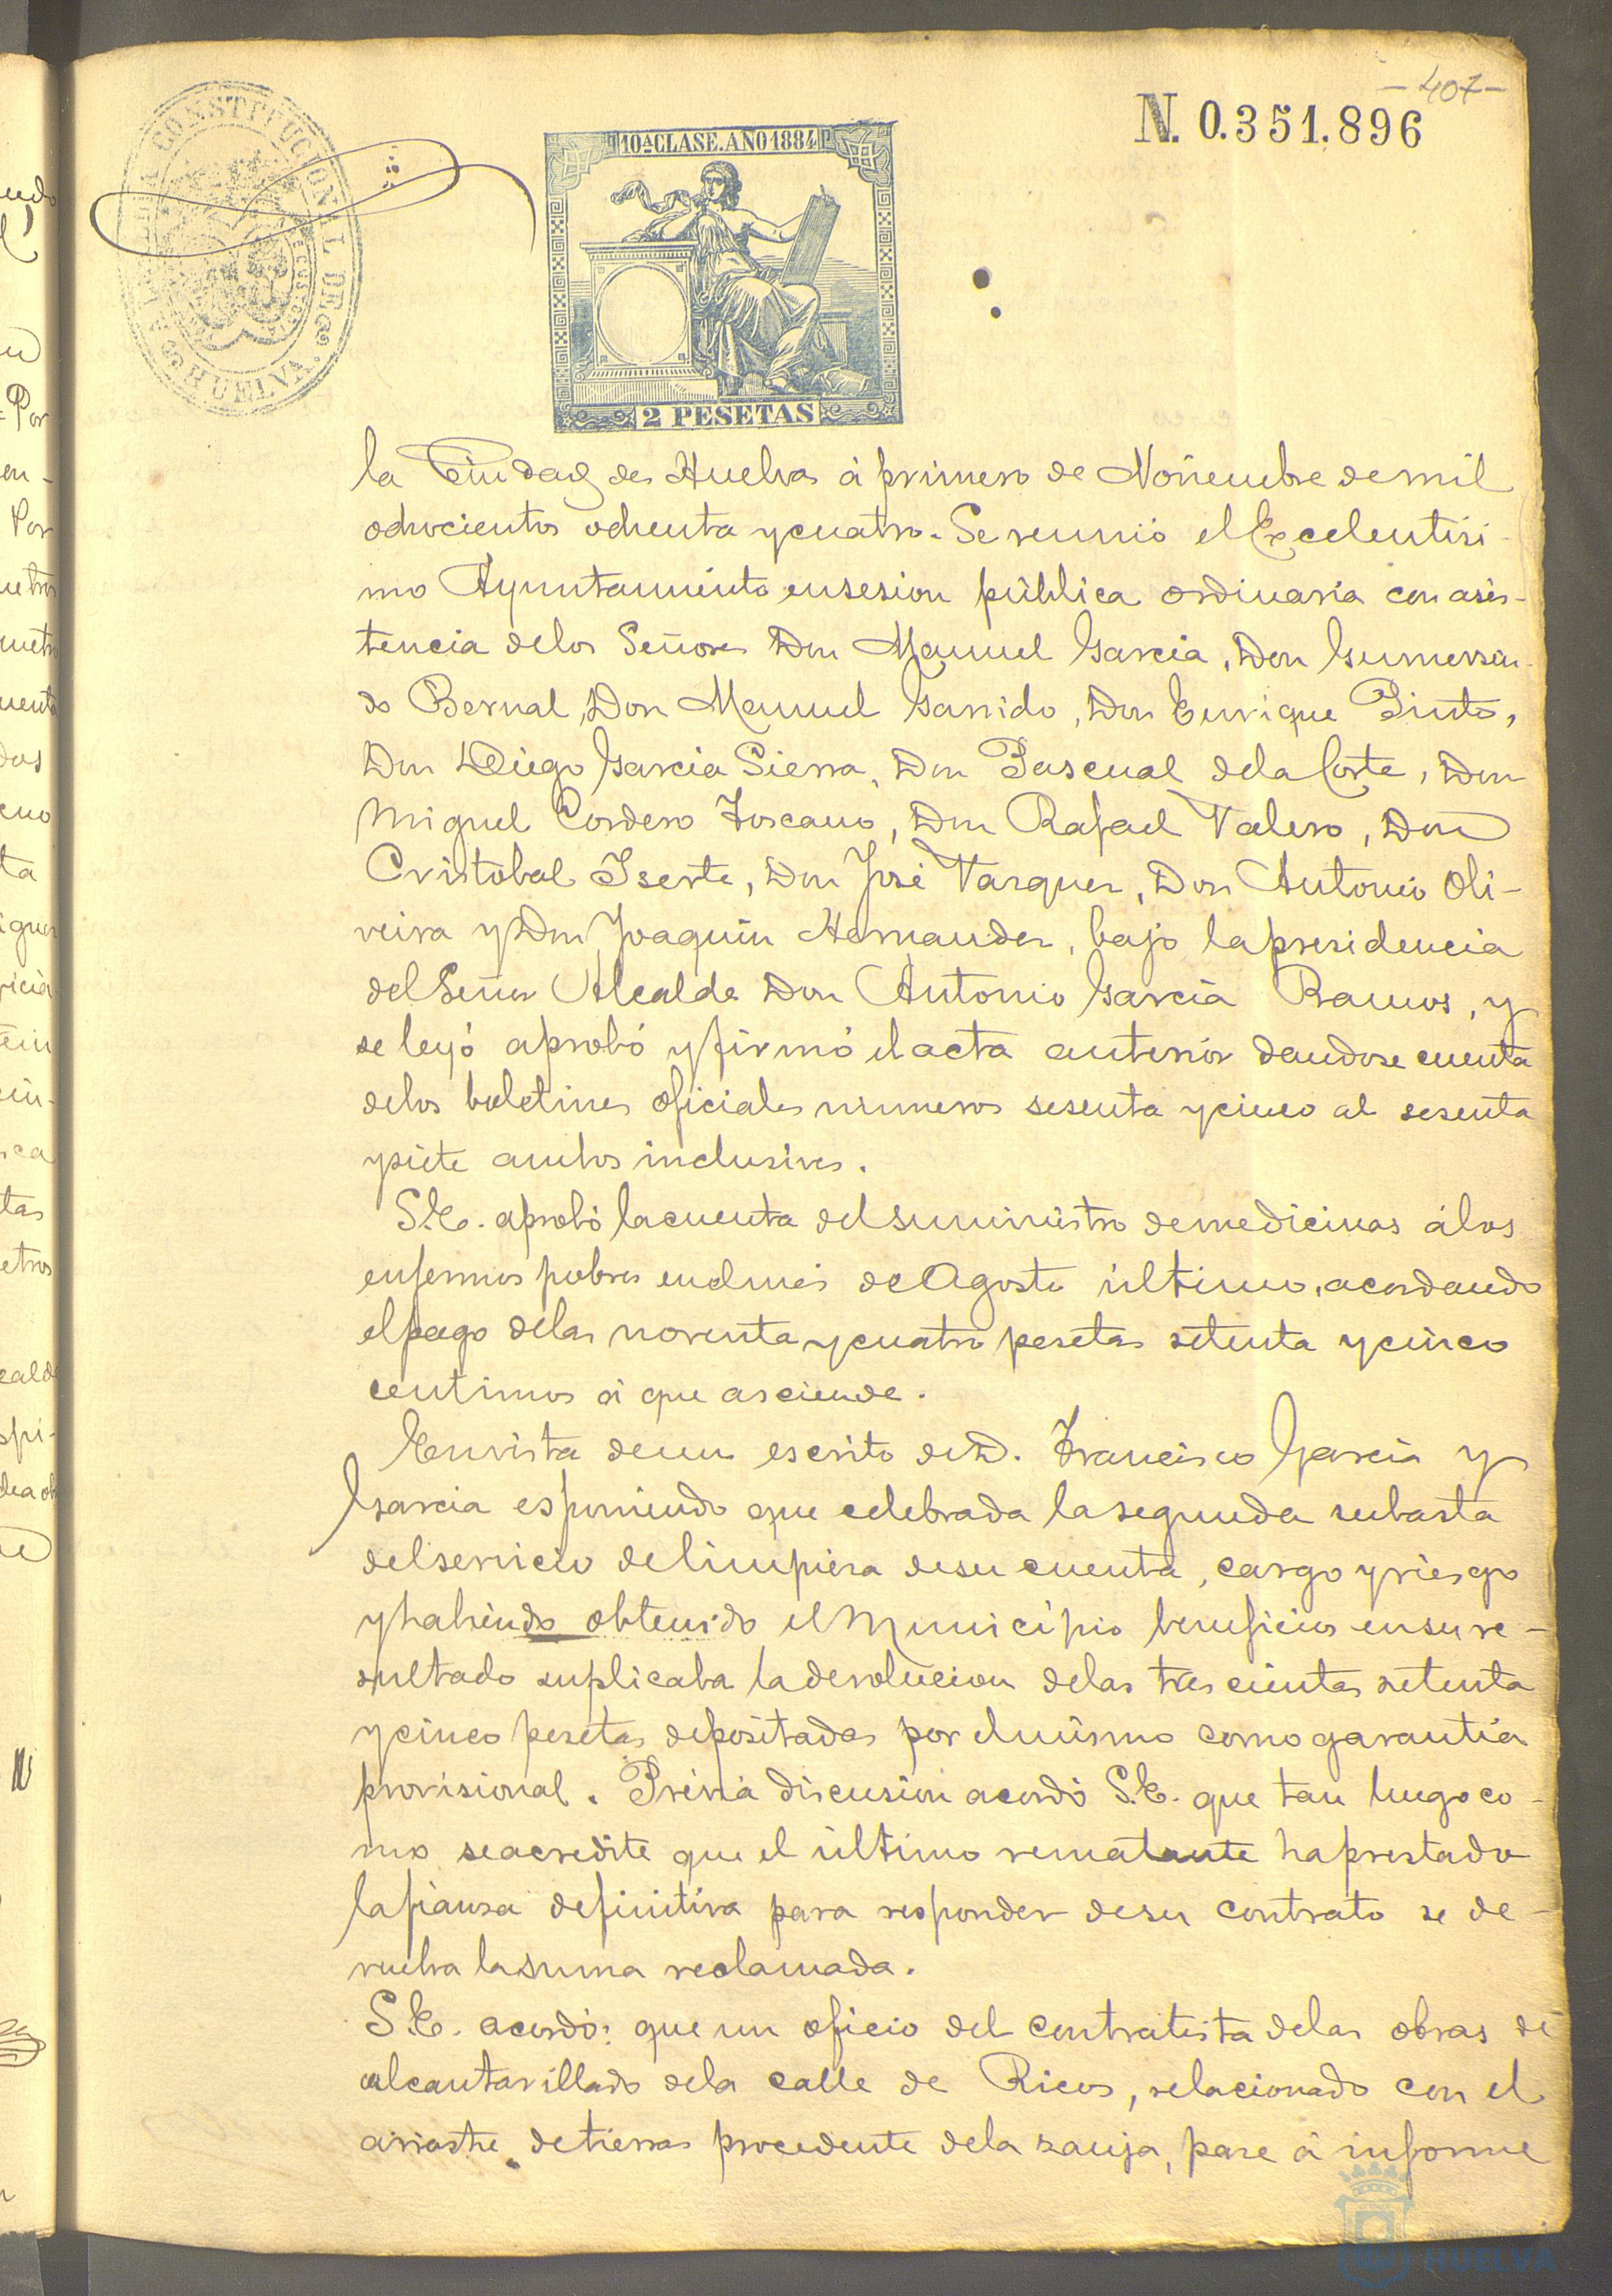 - 407 -
N. 0.351.896
CONSTITUCIONAL DE HUELVA.
10ª CLASE. AÑO 1884
2 PESETAS
la Ciudad de Huelva á primero de Noviembre de mil
ochocientos ochenta y cuatro. Se reunió el Excelentisi-
mo Ayuntamiento en sesion pública ordinaria con asis-
tencia de los Señores Don Manuel Garcia, Don Gumersin-
do Bernal, Don Manuel Garrido, Don Enrique Pinto,
Don Diego Garcia Sierra, Don Pascual de la Corte, Don
Miguel Cordero Toscano, Don Rafael Valero, Don
Cristobal Iserte, Don José Vazquez, Don Antonio Oli-
veira y Don Joaquin Hernandez, bajo la presidencia
del Señor Alcalde Don Antonio Garcia Ramos, y
se leyó aprobó y firmó el acta anterior dandose cuenta
de los boletines oficiales numeros sesenta y cinco al sesenta
y siete ambos inclusives.
S.E. aprobó la cuenta del suministro de medicinas á los
enfermos pobres en el mes de Agosto último, acordando
el pago de las noventa y cuatro pesetas setenta y cinco
centimos á que asciende.
En vista de un escrito de D. Francisco Garcia y
Garcia esponiendo que celebrada la segunda subasta
del servicio de limpieza de su cuenta, cargo y riesgo
y habiendo obtenido el Municipio beneficios en su re-
sultado suplicaba la devolucion de las trescientas setenta
y cinco pesetas depositadas por el mismo como garantia
provisional. Prévia discusion acordó S.E. que tan luego co-
mo se acredite que el último rematante ha prestado
la fianza definitiva para responder de su contrato se de-
vuelva la suma reclamada.
S.E. acordó: que un oficio del contratista de las obras de
alcantarillado de la calle de Ricos, relacionado con el
arrastre de tierras procedente de la zanja, pase á informe
HUELVA